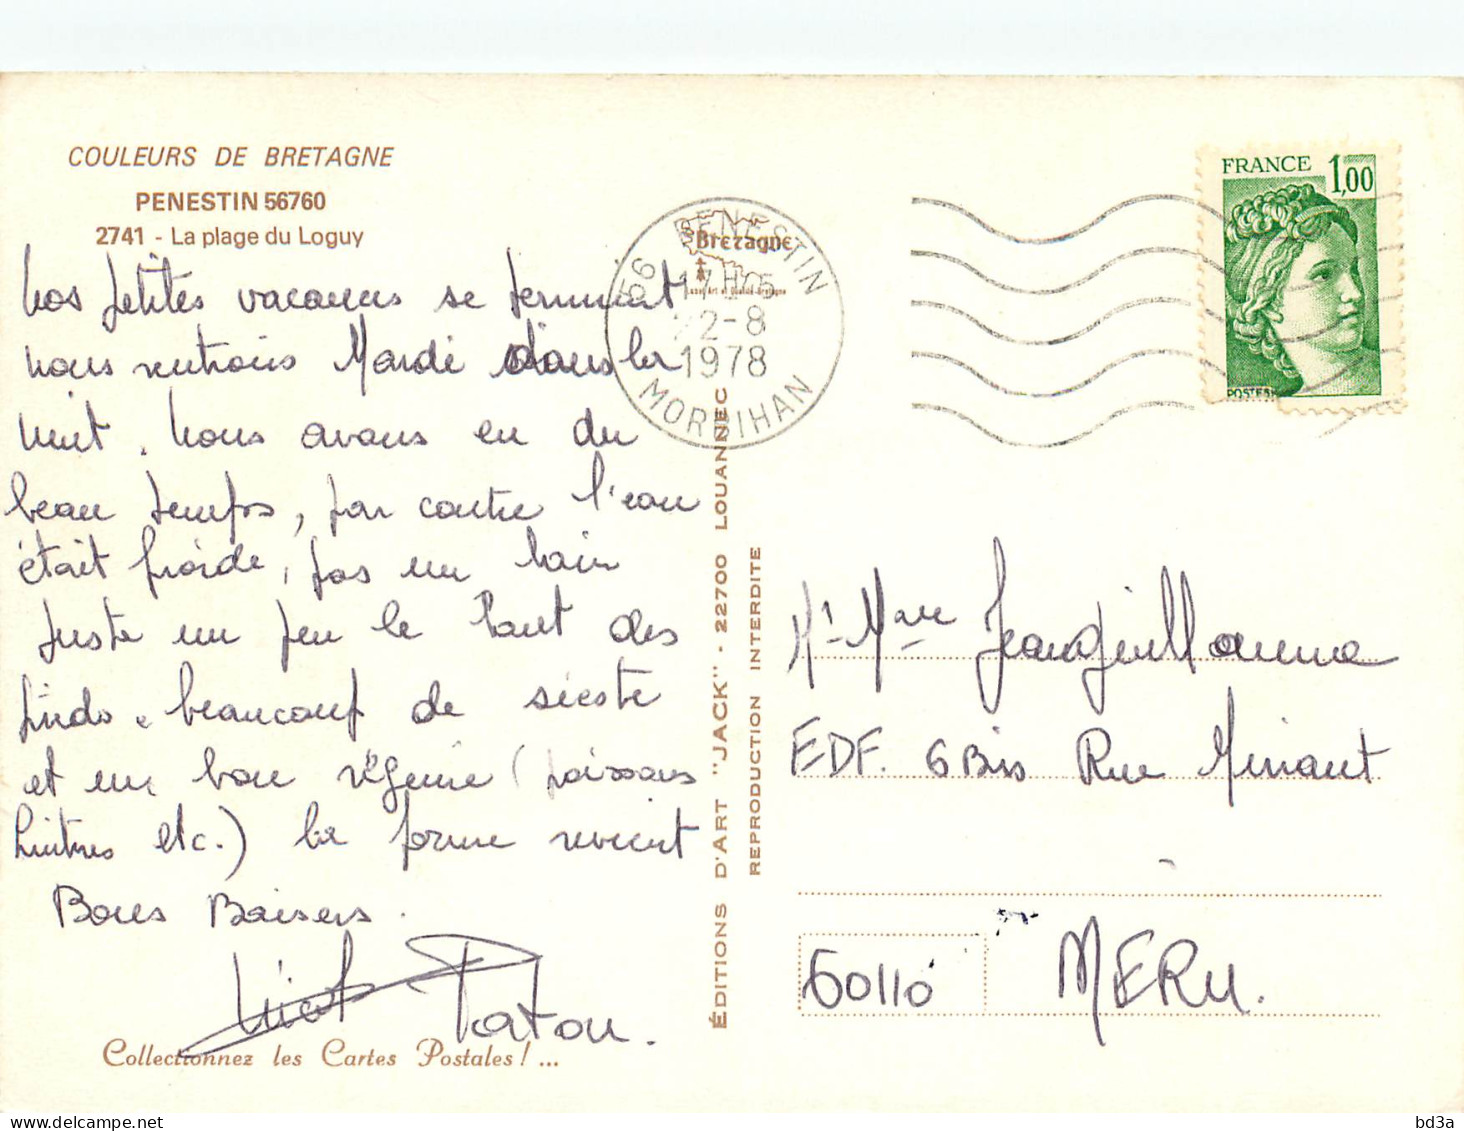 COULEURS DE BRETAGNE
PENESTIN 56760
2741 - La plage du Loguy
Nos petites vacances se terminent
nous rentrons Mardi dans la
nuit. Nous avons eu du
beau temps, par contre l'eau
était froide, pas un bain
juste un peu le haut des
pieds. beaucoup de sieste
et un bon régime (poissons
huitres etc.) la forme revient
Bons Baisers.
Tatou.
Collectionnez les Cartes Postales! ...
56 PENESTIN
17H15
22-8
1978
MORBIHAN
Bretagne
ÉDITIONS D'ART "JACK" - 22700 LOUANNEC
REPRODUCTION INTERDITE
FRANCE 1,00
POSTES
Mr Mme Jeanguillaume
EDF. 6 Bis Rue Minant
60110 MERU.
delcampe.net
bd3a